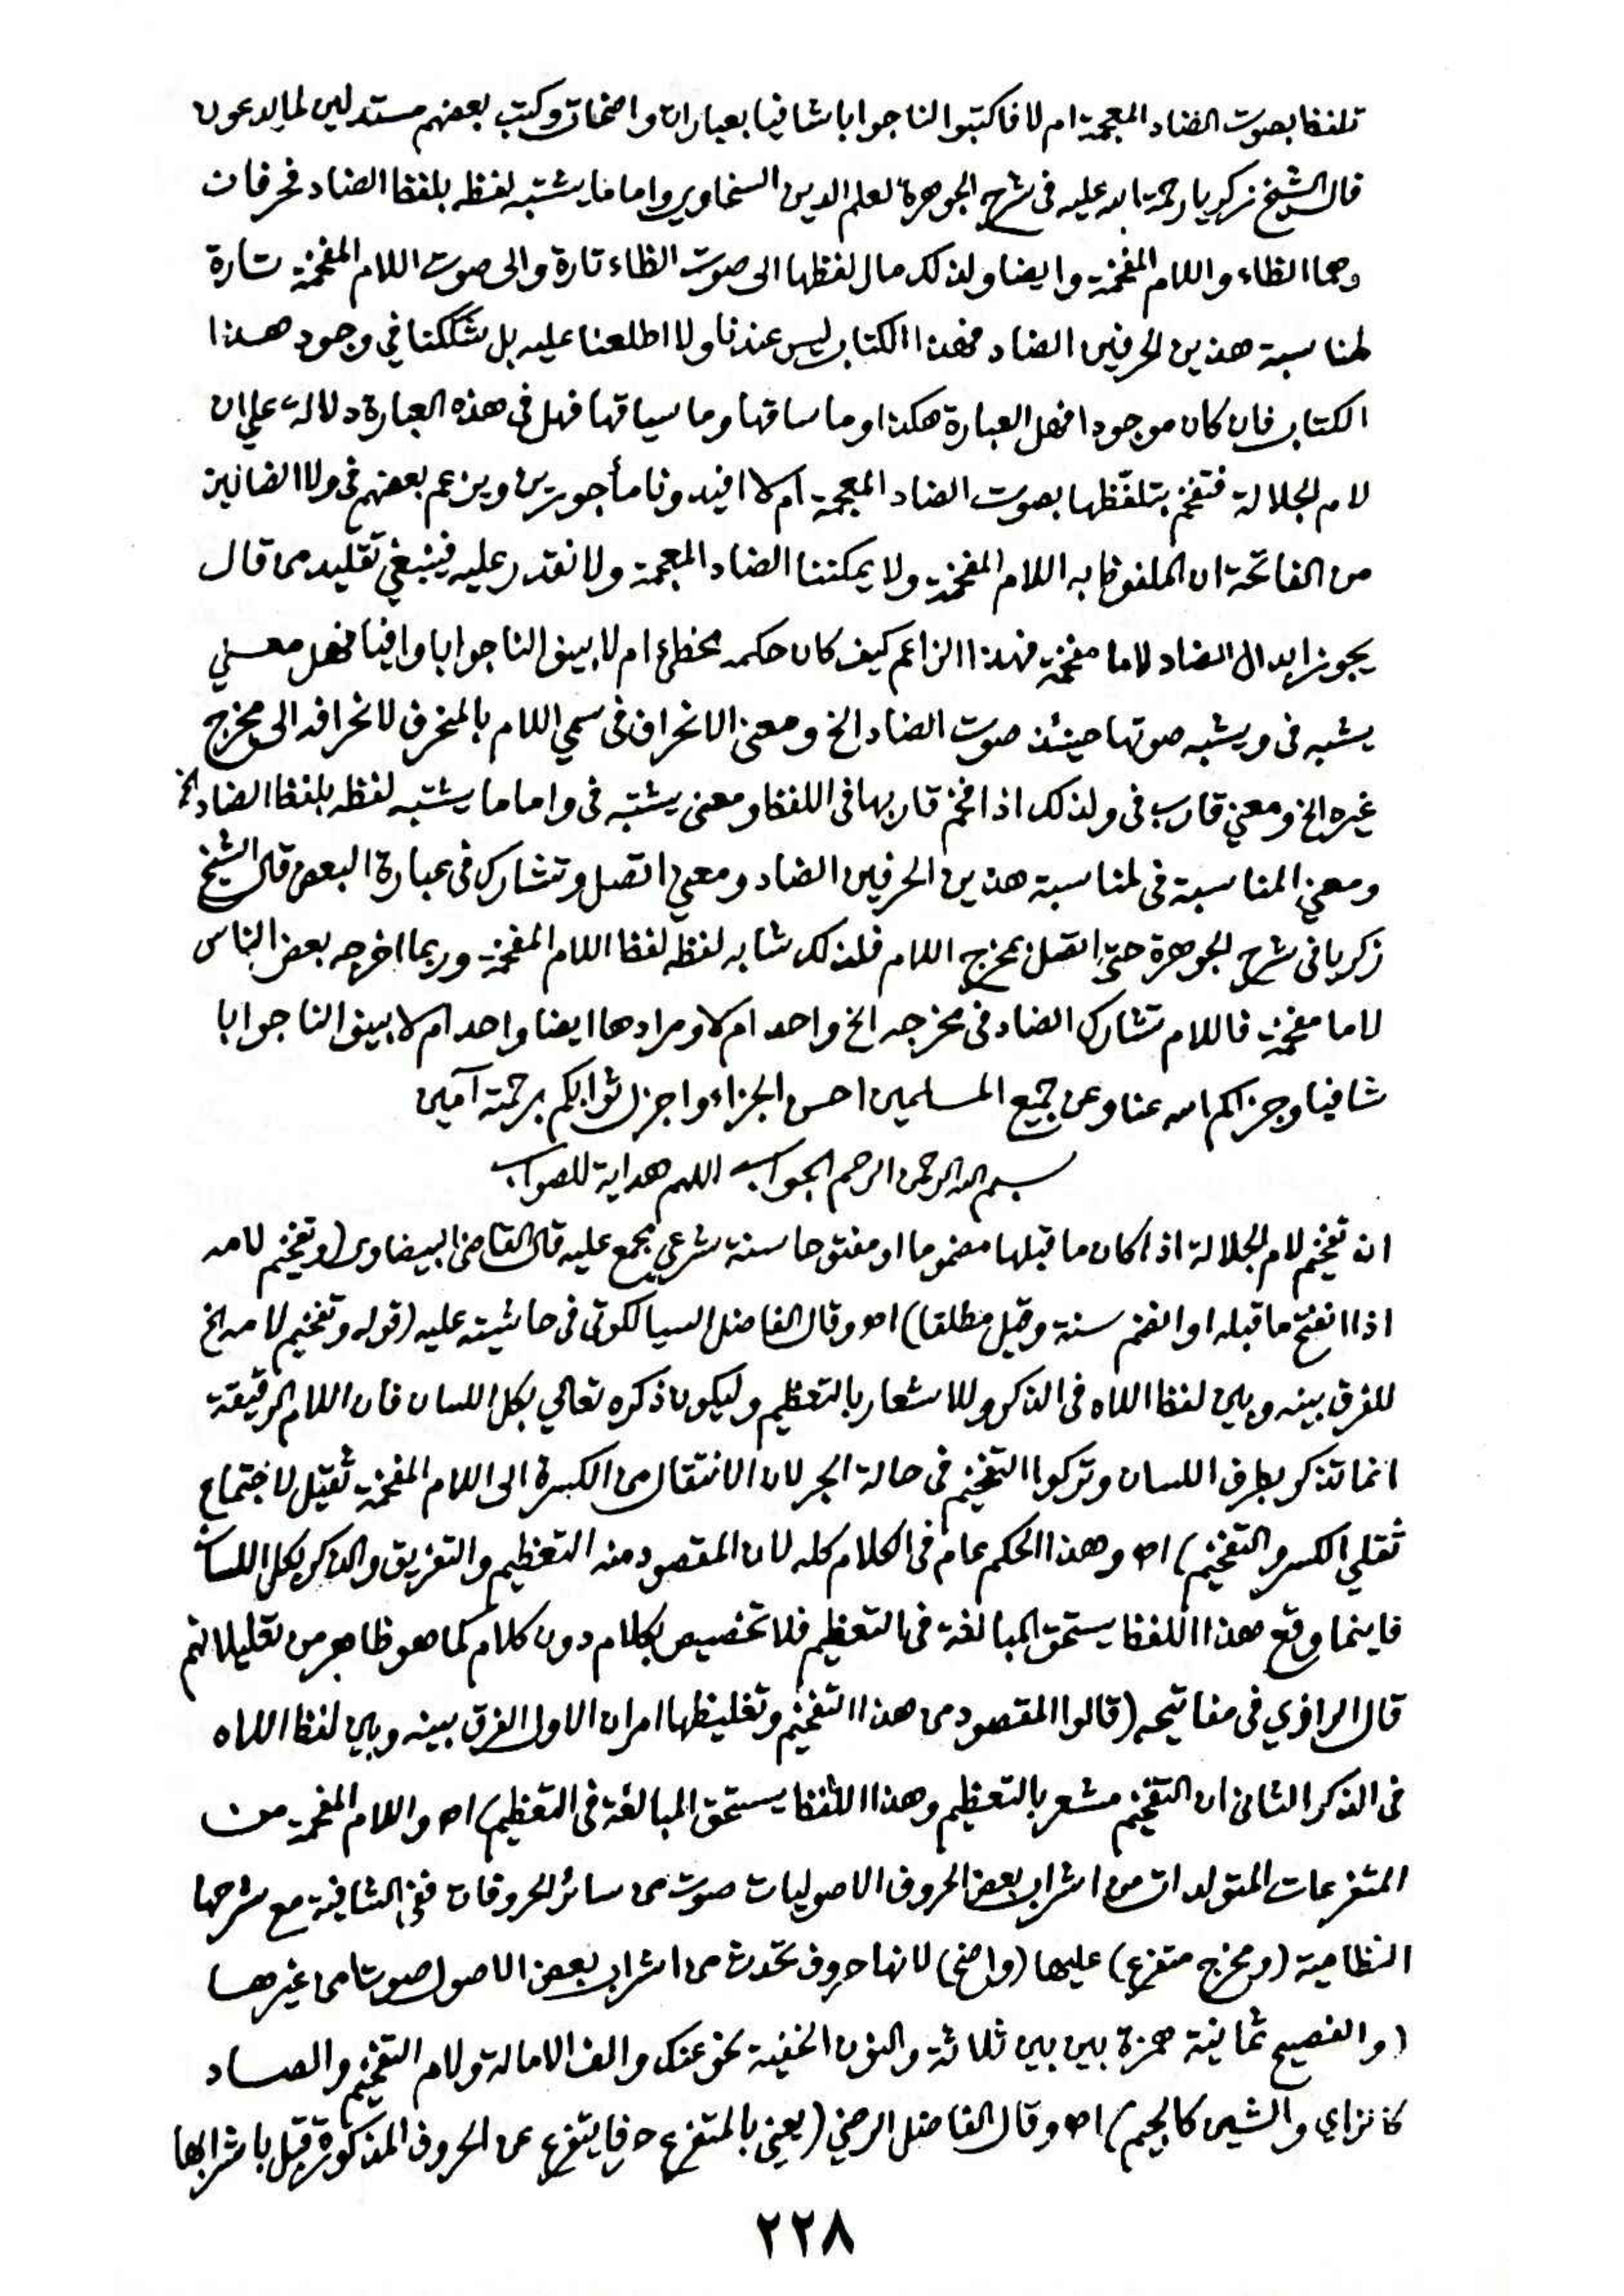 تلفظا بصوت الضاد المعجمة ام لا فاكتبوا لنا جوابا شافيا بعبارات واضحات وكتب بعضهم مستدلين لما يدعون
قال الشيخ زكريا رحمة الله عليه في شرح الجوهرة لعلم الدين السخاوي واما ما يشتبه لفظه بلفظ الضاد فحرفان
وهما الظاء واللام المفخمة وايضا ولذلك مال لفظها الى صوت الظاء تارة والى صوت اللام المفخمة تارة
لمناسبة هذين الحرفين الضاد فهذا الكتاب ليس عندنا ولا اطلعنا عليه بل شككنا في وجود هذا
الكتاب فان كان موجودا فهل العبارة هكذا وما ساقها وما سياقها فهل في هذه العبارة دلالة على ان
لام الجلالة فتفخم بتلفظها بصوت الضاد المعجمة ام لا افيدونا مأجورين ويزعم بعضهم في ولا الضالين
من الفاتحة ان الملفوظ به اللام المفخمة ولا يمكننا الضاد المعجمة ولا نقدر عليه فينبغي تقليد من قال
يجوز ابدال الضاد لاما مفخمة فهذا الزاعم كيف كان حكمه مخطئ ام لا بينوا لنا جوابا وافيا فهل معنى
يشبه في ويشبه صوتها حينئذ صوت الضاد الخ ومعنى الانحراف في سمي اللام بالمنحرف لانحرافه الى مخرج
غيره الخ ومعنى قارب في ولذلك اذا فخم قاربها في اللفظ ومعنى يشتبه في واما ما يشتبه لفظه بلفظ الضاد الخ
ومعنى المناسبة في لمناسبة هذين الحرفين الضاد ومعنى اتصل وتشارك في عبارة البعض قال الشيخ
زكريا في شرح الجوهرة حتى اتصل بمخرج اللام فلذلك شابه لفظه لفظ اللام المفخمة وربما اخرجه بعض الناس
لاما مفخمة فاللام تشارك الضاد في مخرجه الخ واحد ام لا ومرادها ايضا واحد ام لا بينوا لنا جوابا
شافيا وجزاكم الله عنا وعن جميع المسلمين احسن الجزاء واجزل ثوابكم برحمته آمين
بسم الله الرحمن الرحيم الجواب اللهم هداية للصواب
ان تفخيم لام الجلالة اذا كان ما قبلها مضموما او مفتوحا سنة شرعي مجمع عليه قال القاضي البيضاوي (وتفخيم لامه
اذا انفتح ما قبله او انضم سنة وقيل مطلقا) اه وقال الفاضل السيالكوتي في حاشيته عليه (قوله وتفخيم لامه الخ
للفرق بينه وبين لفظ اللاه في الذكر وللاشعار بالتعظيم وليكون ذكره تعالى بكل اللسان فان اللام الرقيقة
انما تذكر بطرف اللسان وتركوا التفخيم في حالة الجر لان الانتقال من الكسرة الى اللام المفخمة ثقيل لاجتماع
ثقلي الكسر والتفخيم) اه وهذا الحكم عام في الكلام كله لان المقصود منه التعظيم والتفريق والذكر بكل اللسان
فاينما وقع هذا اللفظ يستحق المبالغة في التعظيم فلا تخصيص بكلام دون كلام كما هو ظاهر من تعليلاتهم
قال الرازي في مفاتيحه (قالوا المقصود من هذا التفخيم وتغليظها امران الاول الفرق بينه وبين لفظ اللاه
في الذكر الثاني ان التفخيم مشعر بالتعظيم وهذا اللفظ يستحق المبالغة في التعظيم) اه واللام المفخمة من
المتفرعات المتولدات من اشراب بعض الحروف الاصوليات صوت من سائر الحروفات ففي الشافية مع شرحها
النظامية (ومخرج متفرع) عليها (واضح) لانها حروف تحدث من اشراب بعض الاصول صوتا من غيرها
(والفصيح ثمانية همزة بين بين ثلاثة والنون الخفية نحو عنك والف الامالة ولام التفخيم والصاد
كالزاي والشين كالجيم) اه وقال الفاضل الرضي (يعني بالمتفرع حرفا يتفرع عن الحروف المذكورة قبل باشرابها
٢٢٨